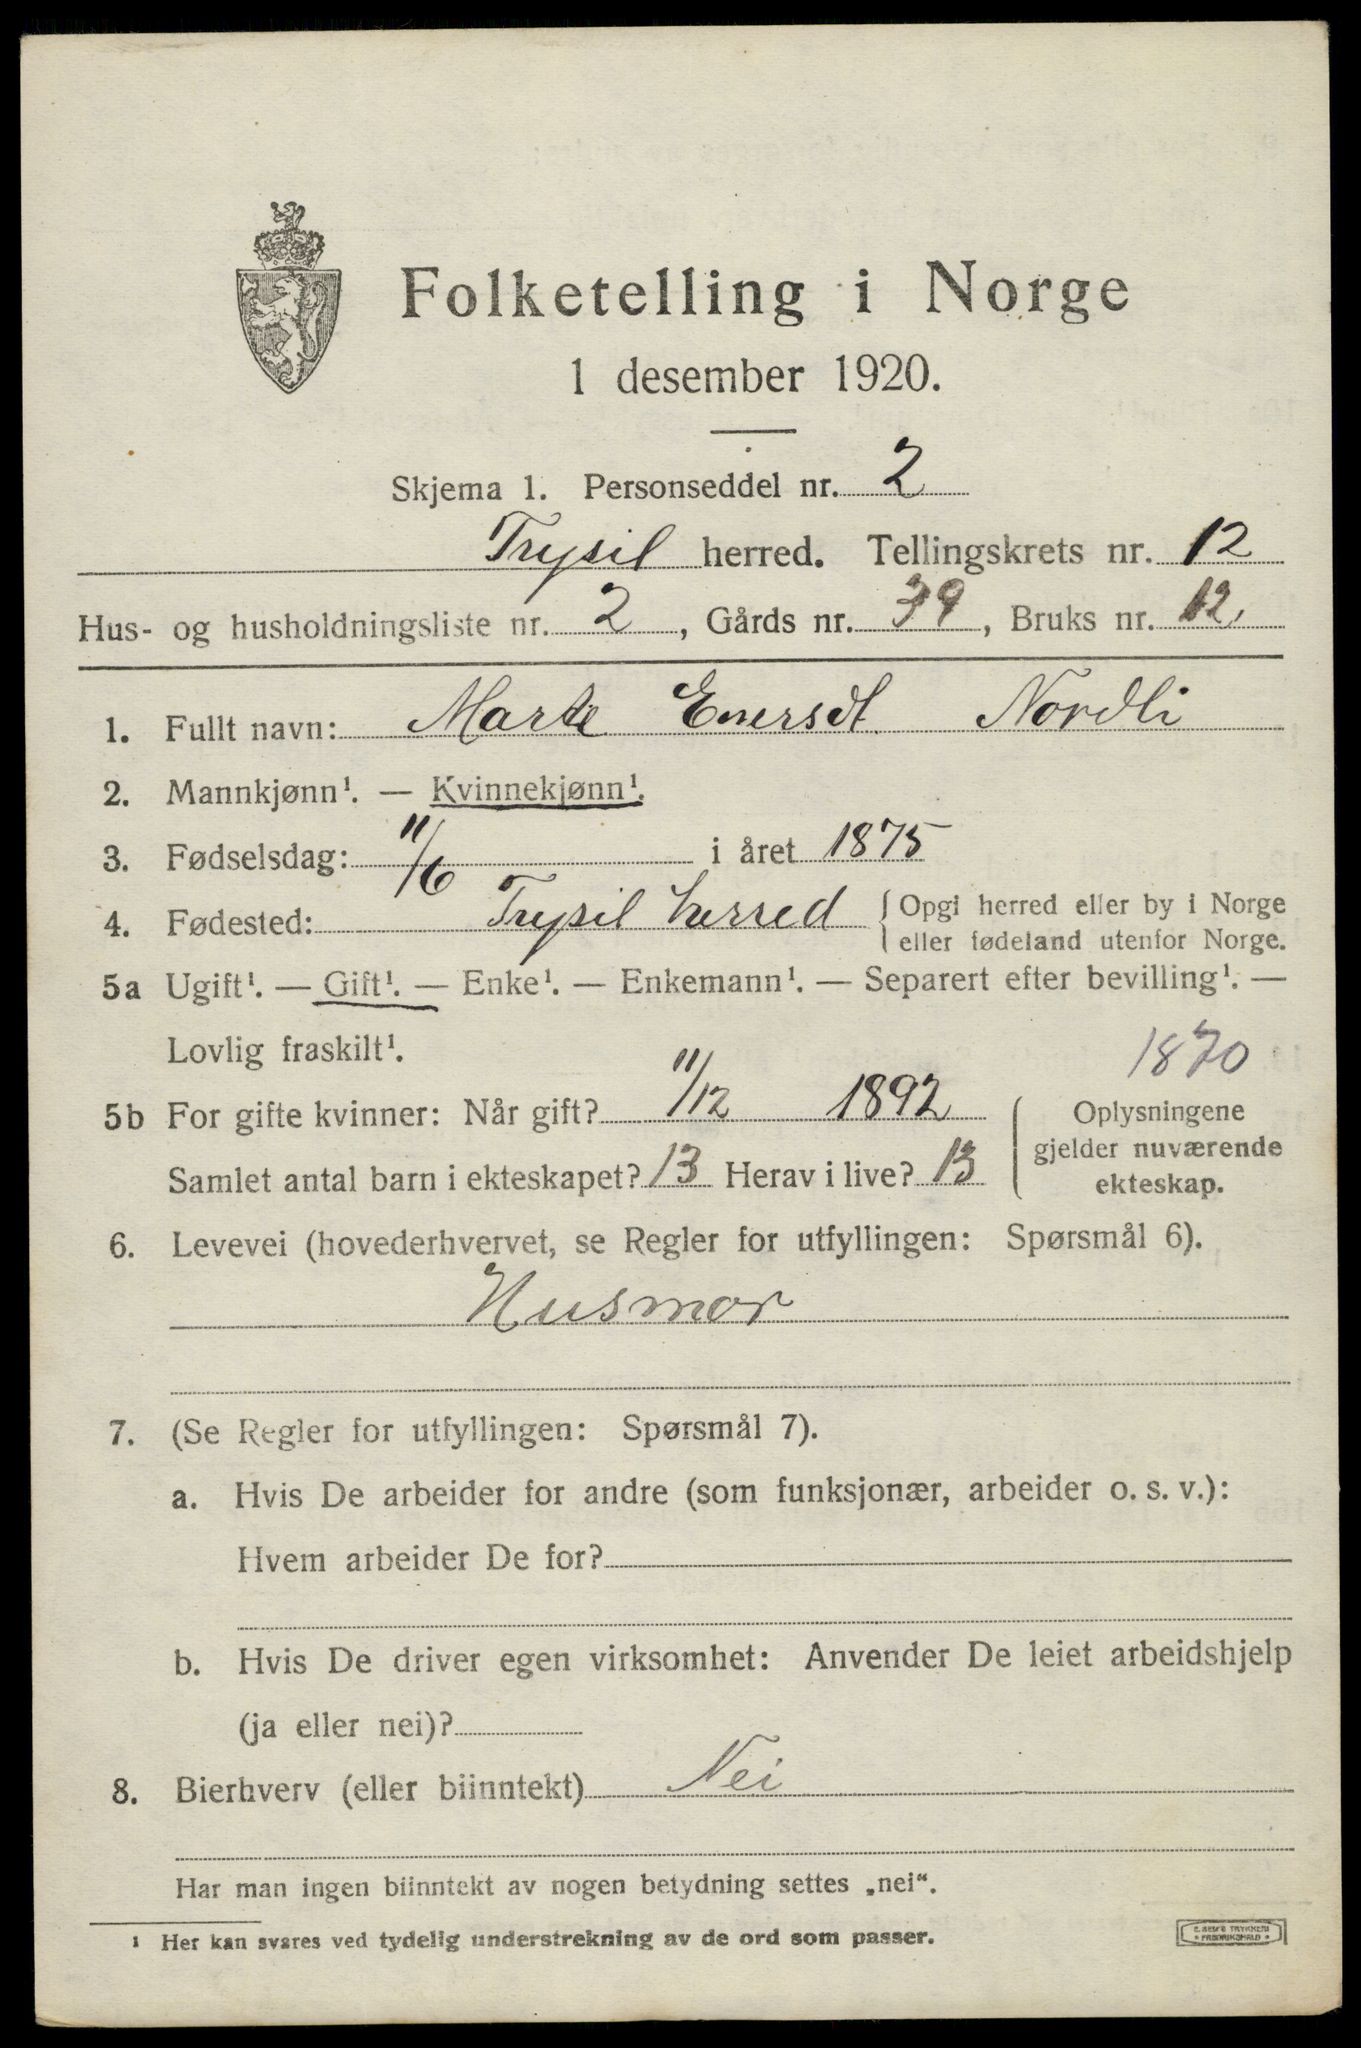 Folketelling i Norge
1 desember 1920.
Skjema 1. Personseddel nr. 2
Trysil herred. Tellingskrets nr. 12
Hus- og husholdningsliste nr. 2, Gårds nr. 39, Bruks nr. 12,
1. Fullt navn: Marte Enersdt. Nordli
2. Mannkjønn¹. — Kvinnekjønn¹.
3. Fødselsdag: 11/6 i året 1875
4. Fødested: Trysil herred {Opgi herred eller by i Norge
eller fødeland utenfor Norge.
5a Ugift¹. — Gift¹. — Enke¹. — Enkemann¹. — Separert efter bevilling¹. —
Lovlig fraskilt¹.
1870
5b For gifte kvinner: Når gift? 11/12 1892
Samlet antal barn i ekteskapet? 13 Herav i live? 13
Oplysningene
gjelder nuværende
ekteskap.
6. Levevei (hovederhvervet, se Regler for utfyllingen: Spørsmål 6).
Husmor
7. (Se Regler for utfyllingen: Spørsmål 7).
a. Hvis De arbeider for andre (som funksjonær, arbeider o. s. v.):
Hvem arbeider De for?
b. Hvis De driver egen virksomhet: Anvender De leiet arbeidshjelp
(ja eller nei)?
8. Bierhverv (eller biinntekt) Nei
Har man ingen biinntekt av nogen betydning settes „nei".
¹ Her kan svares ved tydelig understrekning av de ord som passer.